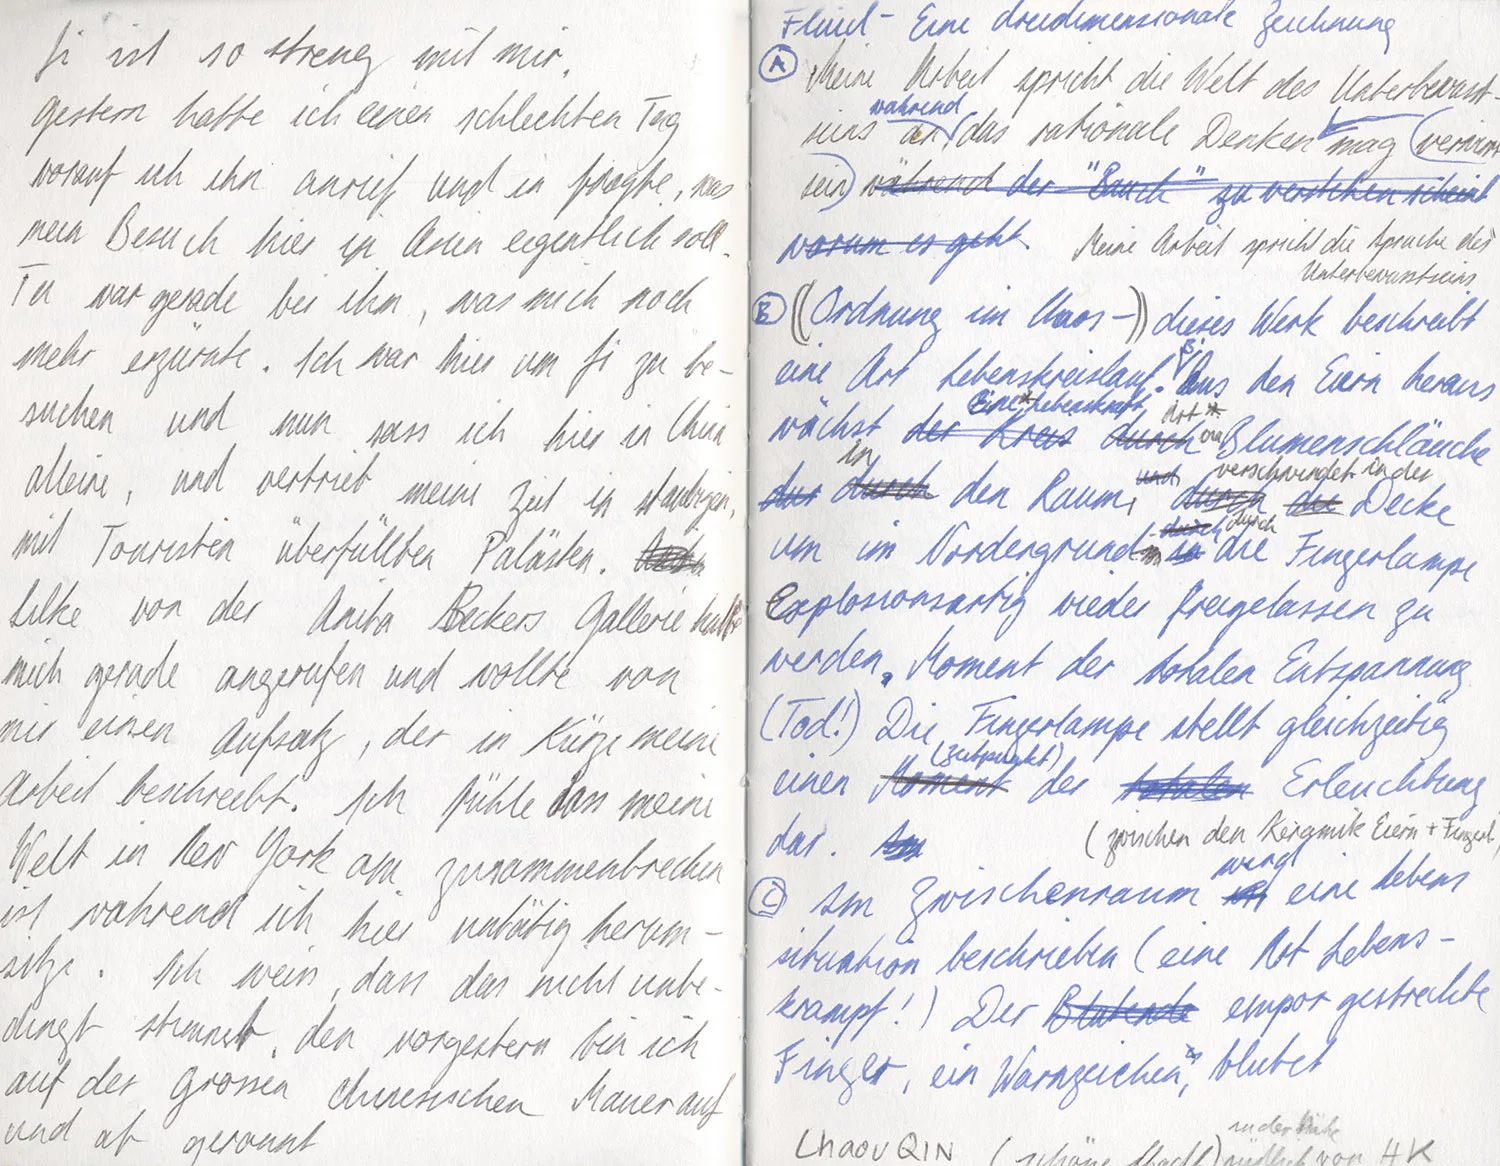 Ji ist so streng mit mir.
gestern hatte ich einen schlechten Tag
worauf ich ihn anrief und in fragte, was
mein Besuch hier in Asien eigentlich soll.
Tu war gerade bei ihm, was mich noch
mehr erzürnte. Ich war hier um Ji zu be-
suchen und nun sass ich hier in China
alleine, und vertrieb meine Zeit in staubigen,
mit Touristen überfüllten Palästen.
Silke von der Anita Beckers Gallerie hatte
mich gerade angerufen und wollte von
mir einen Aufsatz, der in Kürze meine
Arbeit beschreibt. Ich fühle dass meine
Welt in New York am zusammenbrechen
ist während ich hier untätig herum-
sitze. Ich weiss, dass das nicht unbe-
dingt stimmt, den vorgestern bin ich
auf der Grossen Chinesischen Mauer auf
und ab gerannt
Fluid - Eine dreidimensionale Zeichnung
A Meine Arbeit spricht die Welt des Unterbewusst-
während
seins an, das rationale Denken mag (verwirrt
sein) während der "Bauch" zu verstehen scheint
worum es geht. Meine Arbeit spricht die Sprache des
Unterbewusstseins
B ((Ordnung im Chaos-)) dieses Werk beschreibt
eine Art Lebenskreislauf. Aus den Eiern heraus
Eine* Lebenskraft, Art *
wächst der Kreis durch Blumenschläuche
in verschwindet in der
durch den Raum, und durch die Decke
durch
um im Vordergrund in die Fingerlampe
Explosionsartig wieder freigelassen zu
werden. Moment der totalen Entspannung
(Tod!) Die Fingerlampe stellt gleichzeitig
(Zeitpunkt)
einen Moment der totalen Erleuchtung
dar.
(zwischen den Keramik Eiern + Fingerl.)
wird
C Im Zwischenraum eine Lebens
situation beschrieben (eine Art Lebens-
krampf!) Der Blutende empor gestreckte
Finger, ein Warnzeichen, blutet
in der Nähe
ChaouQIN (schöne Stadt) südlich von HK